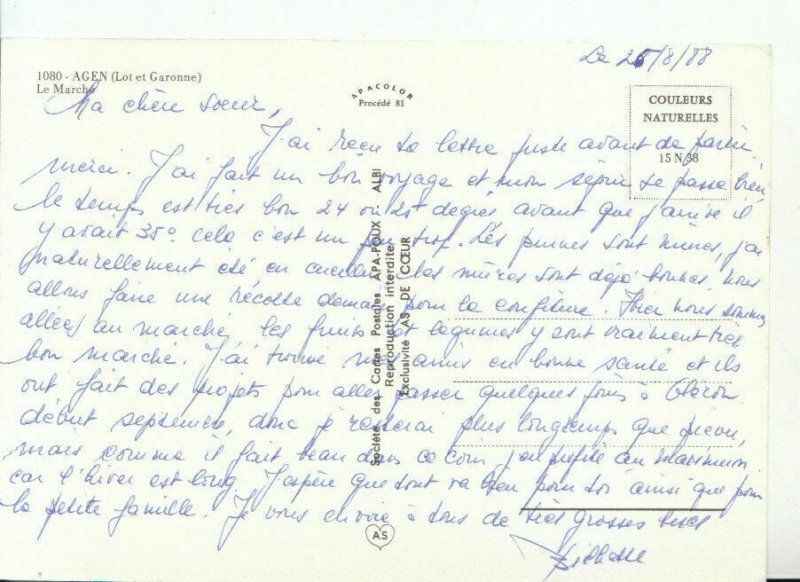 Le 25/8/88
1080 - AGEN (Lot et Garonne)
Le Marché
APACOLOR
Procédé 81
COULEURS
NATURELLES
15 N 38
Ma chère soeur,
J'ai reçu ta lettre juste avant de partir
merci. J'ai fait un bon voyage et mon séjour se passe bien
le temps est très bon 24 ou 25 degrés avant que j'arrive il
y avait 35° cela c'est un peu trop. Les prunes sont mûres, j'ai
naturellement été en cueillir, les mûres sont déjà bonnes. Nous
allons faire une récolte demain pour la confiture. Hier nous sommes
allées au marché les fruits et legumes y sont vraiment très
bon marché. J'ai trouvé mes amis en bonne santé et ils
ont fait des projets pour aller passer quelques jours à Oléron
début septembre, donc je resterai plus longtemps que prévu,
mais comme il fait beau dans ce coin, j'en profite au maximum
car l'hiver est long. J'espère que tout va bien pour toi ainsi que pour
la petite famille. Je vous envoie à tous de très grosses bises
Société des Cartes Postales APA-POUX - ALBI
Reproduction interdite
Exclusivité AS DE CŒUR
AS